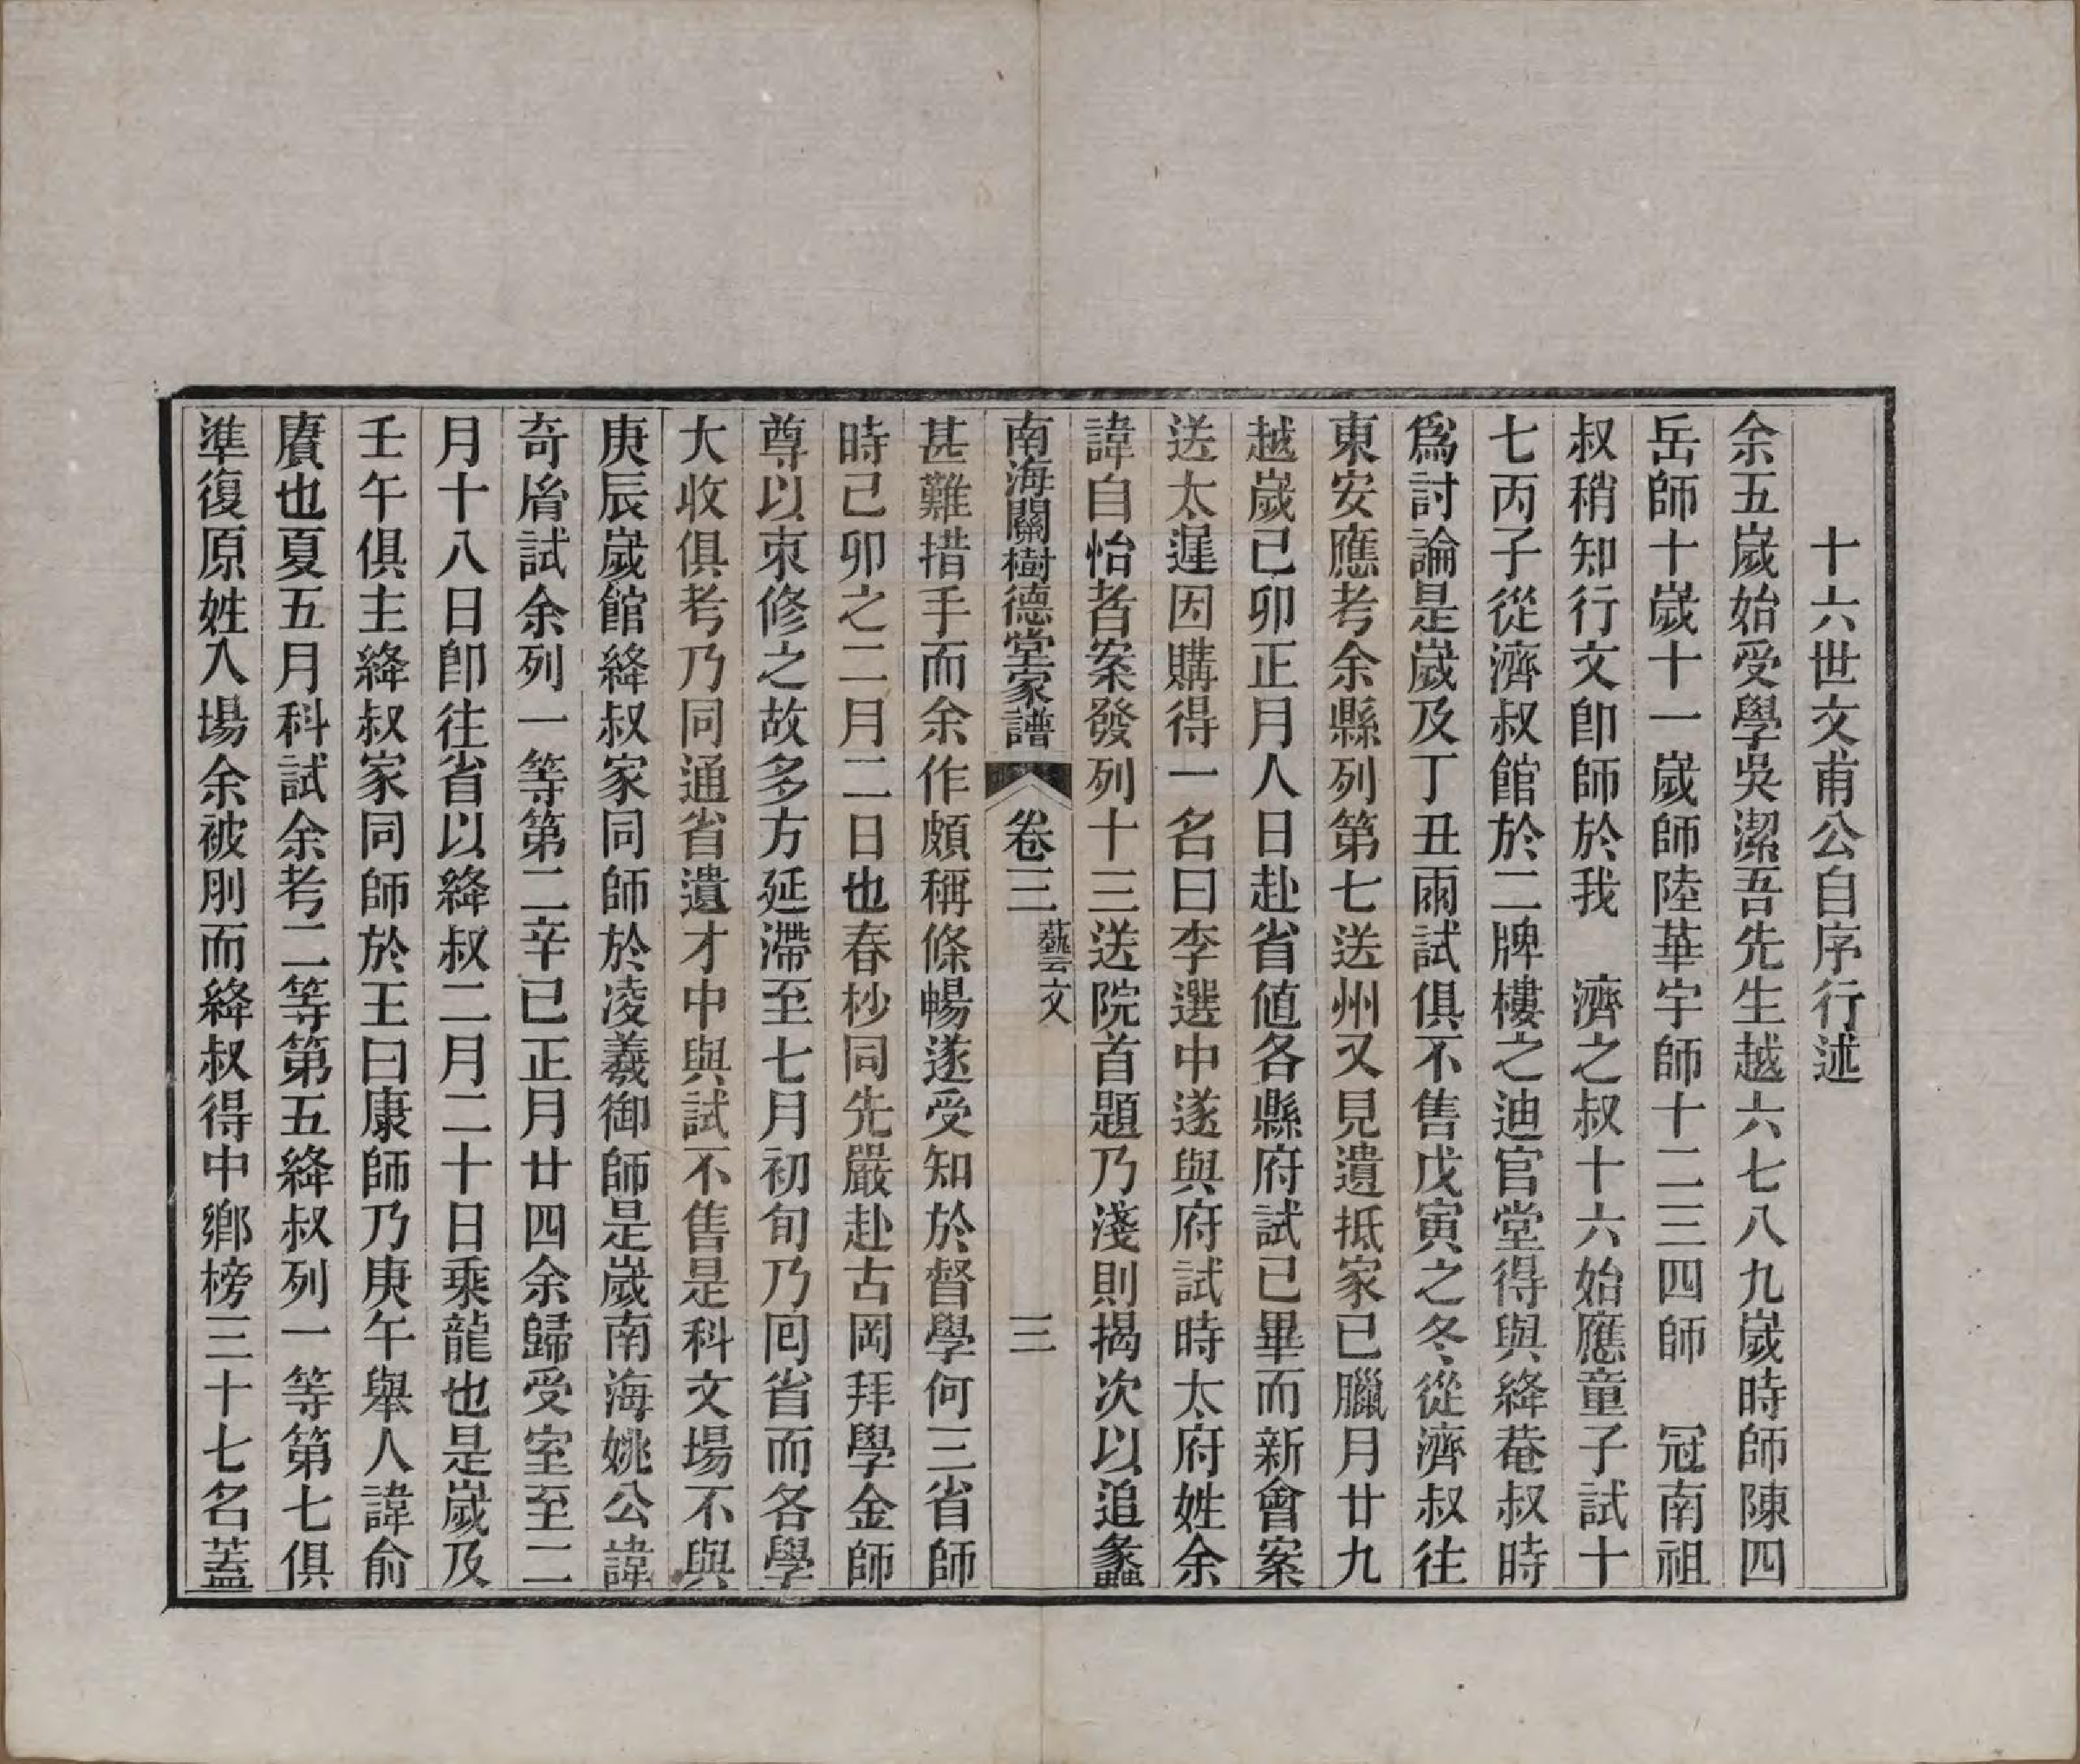 十六世文甫公自序行述
余五歲始受學吳潔吾先生越六七八九歲時師陳四
岳師十歲十一歲師陸華宇師十二三四師　冠南祖
叔稍知行文卽師於我　濟之叔十六始應童子試十
七丙子從濟叔館於二牌樓之迪官堂得與絳菴叔時
爲討論是歲及丁丑兩試俱不售戊寅之冬從濟叔往
東安應考余縣列第七送州又見遺抵家已臘月廿九
越歲己卯正月人日赴省値各縣府試已畢而新會案
送太遲因購得一名曰李選中遂與府試時太府姓余
諱自怡者案發列十三送院首題乃淺則揭次以追蠡
南海關樹德堂家譜　卷三　藝文　三
甚難措手而余作頗稱條暢遂受知於督學何三省師
時己卯之二月二日也春杪同先嚴赴古岡拜學金師
尊以束修之故多方延滯至七月初旬乃囘省而各學
大收俱考乃同通省遺才中與試不售是科文場不與
庚辰歲館絳叔家同師於凌羲御師是歲南海姚公諱
奇㣧試余列一等第二辛巳正月廿四余歸受室至二
月十八日卽往省以絳叔二月二十日乘龍也是歲及
壬午俱主絳叔家同師於王曰康師乃庚午舉人諱俞
賡也夏五月科試余考二等第五絳叔列一等第七俱
準復原姓入場余被刖而絳叔得中鄉榜三十七名蓋